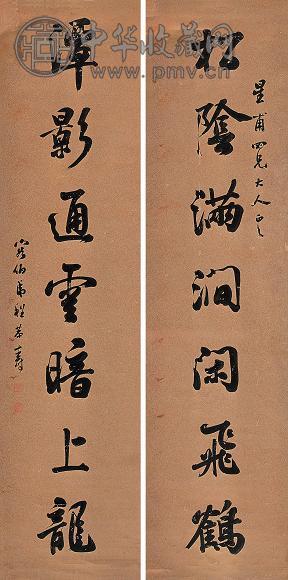 中华收藏网
www.pmv.cn
星甫四兄大人正之
松陰滿澗閑飛鶴
潭影通雲暗上龍
容伯弟程恭壽